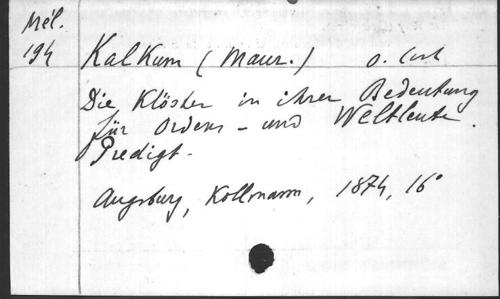 Mél.
194 Kalkum (Maur.) o. Cist
Die Klöster in ihrer Bedeutung
für Ordens- und Weltleute.
Predigt.
Augsburg, Kollmann, 1874, 16°